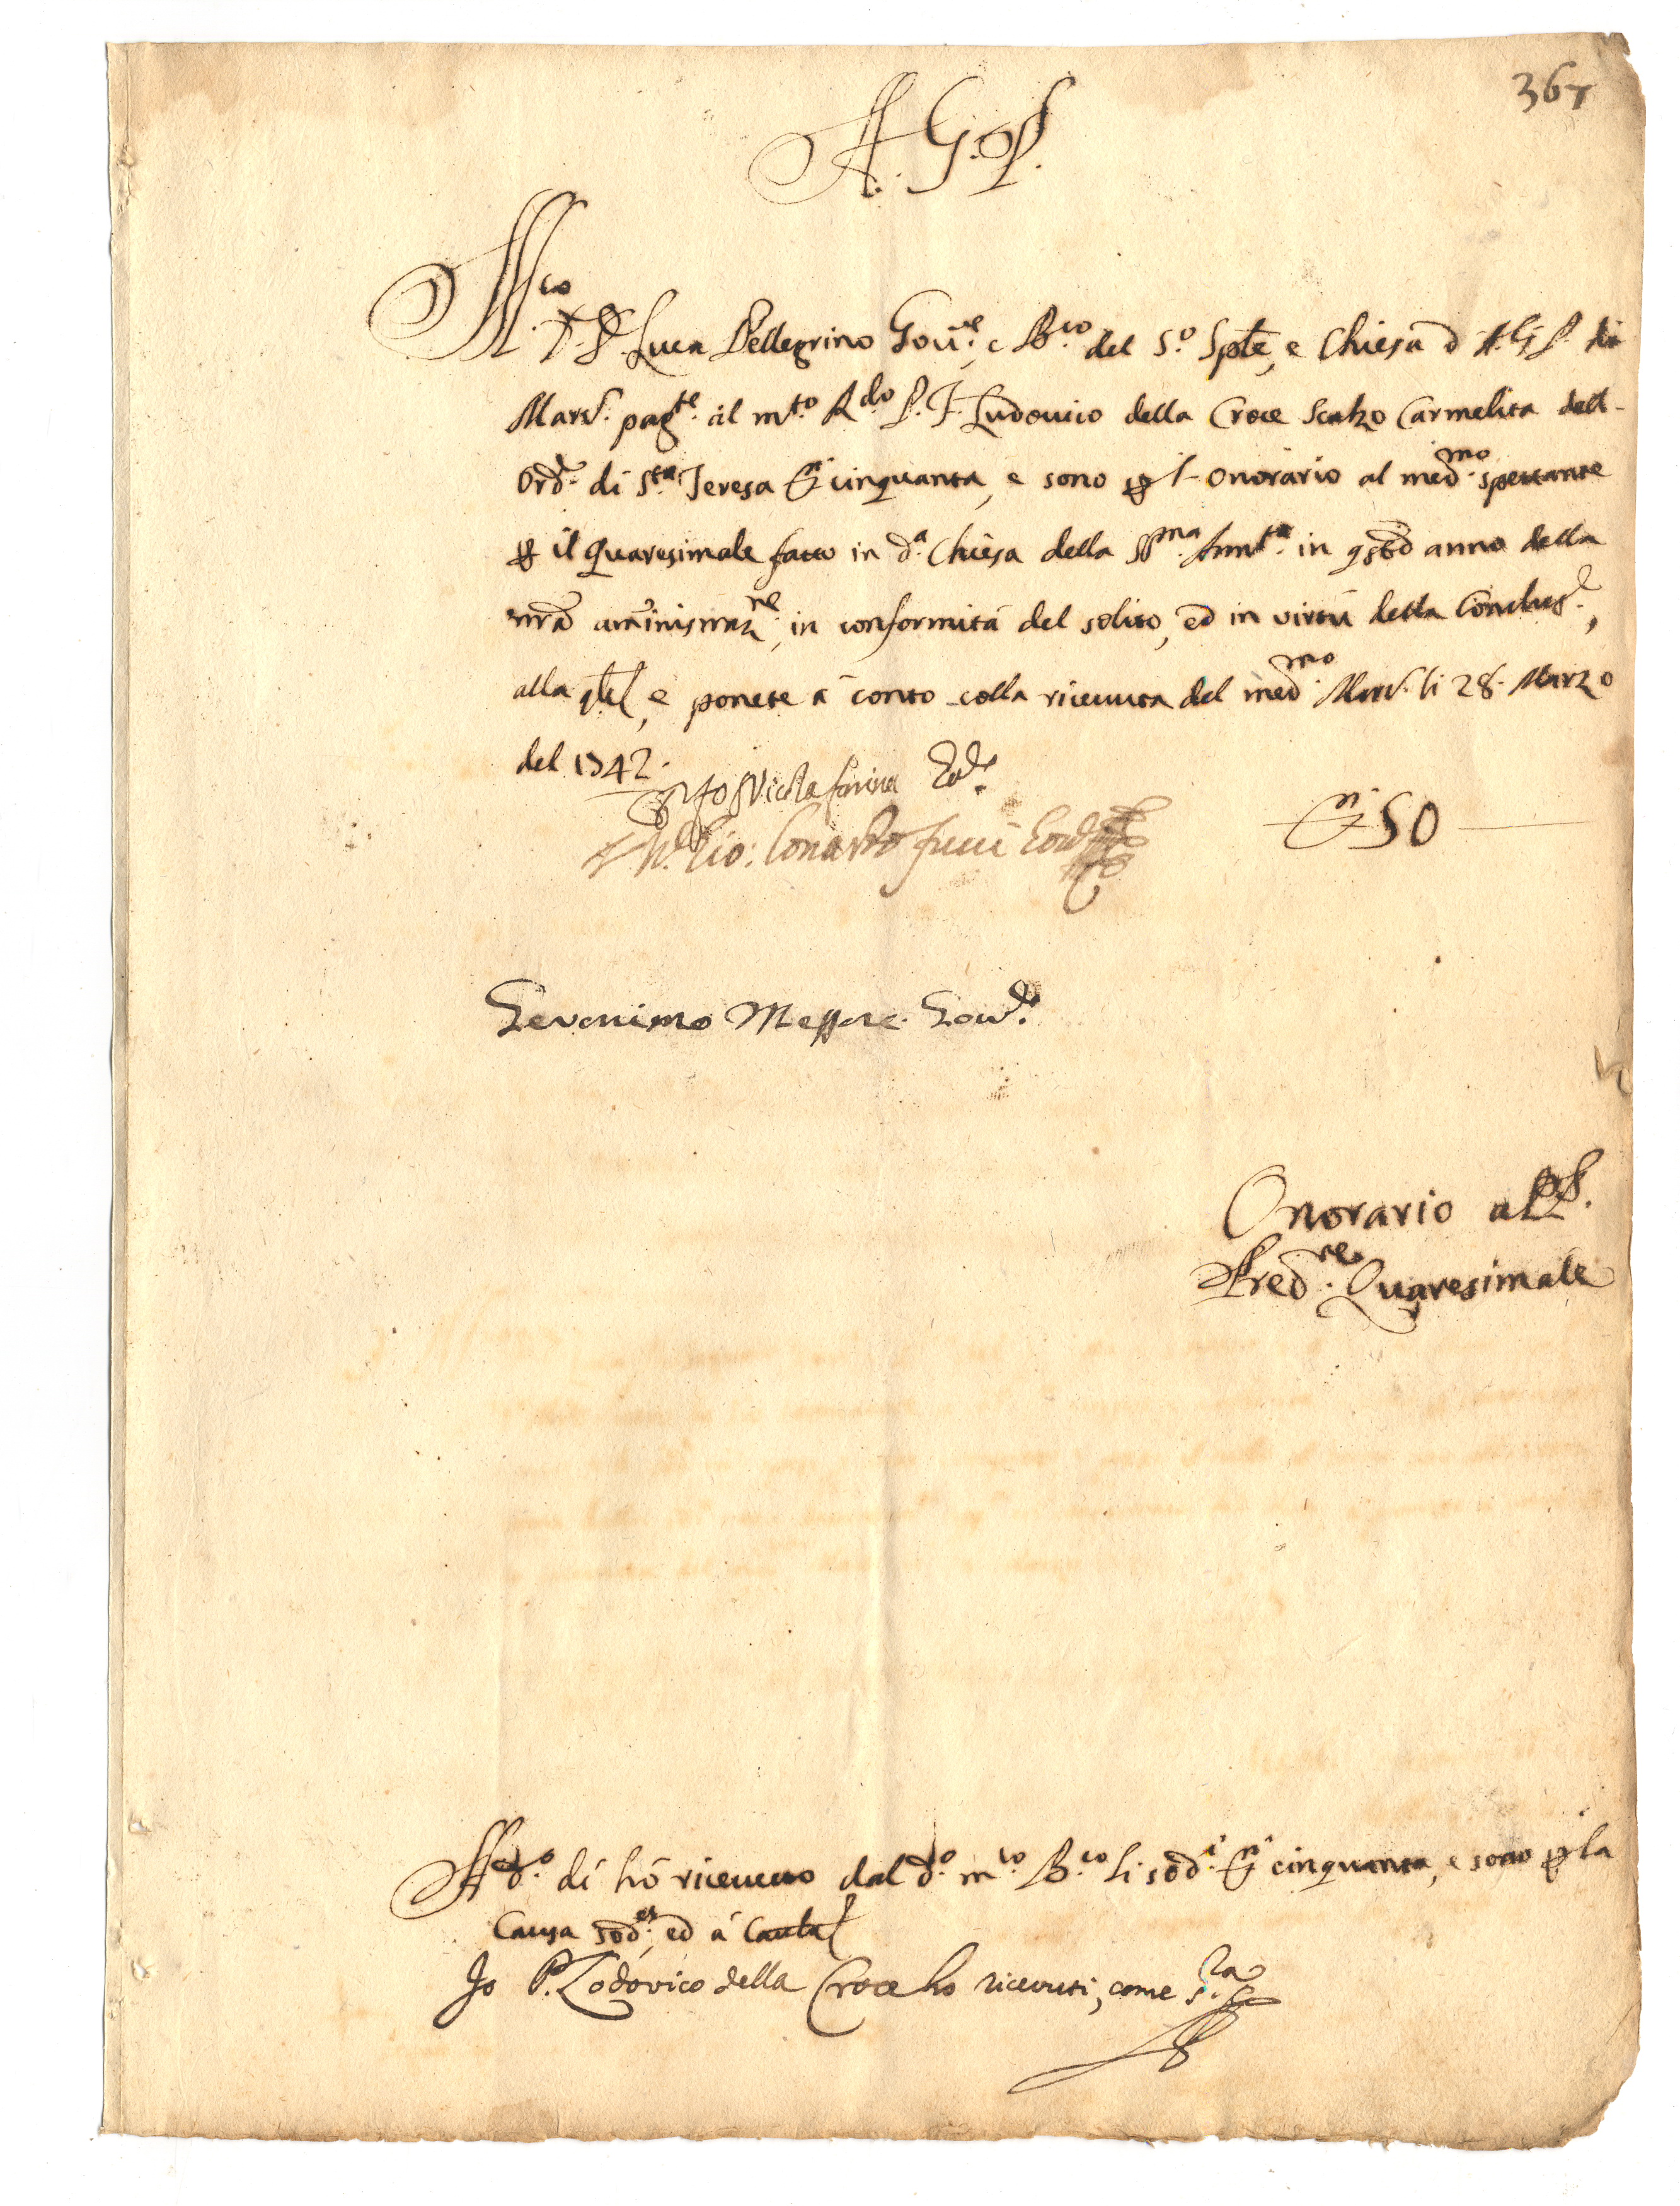 367
A. G. P.
M.co D. Luca Pellegrino Gov.re, e B.co del S.o Sple, e Chiesa d A. G. P. di
Marc. pag.te al m.to R.do P. F. Ludovico della Croce Scalzo Carmelita dell-
Ord.e di S.ta Teresa D.ti cinquanta, e sono p l-onorario al med.mo spettante
p il Quaresimale fatto in d.a Chiesa della SS.ma Annta. in qsto anno della
nra amministraz.ne, in conformità del solito, ed in virtù della Conclus.e,
alla qle, e ponete à conto colla ricevuta del med.mo Marc. li 28. Marzo
del 1742.
Nicola Farina
Gio: Lonardo
D.ti 50
Geronimo Messore Gov.re
Onorario al P.
Pred.re Quaresimale
A d.o dì hò ricevuto dal d.o m.co B.co li sod.i D.ti cinquanta, e sono p la
Causa sod.a, ed à Cautela
Io P. Lodovico della Croce ho ricevuti, come s.a